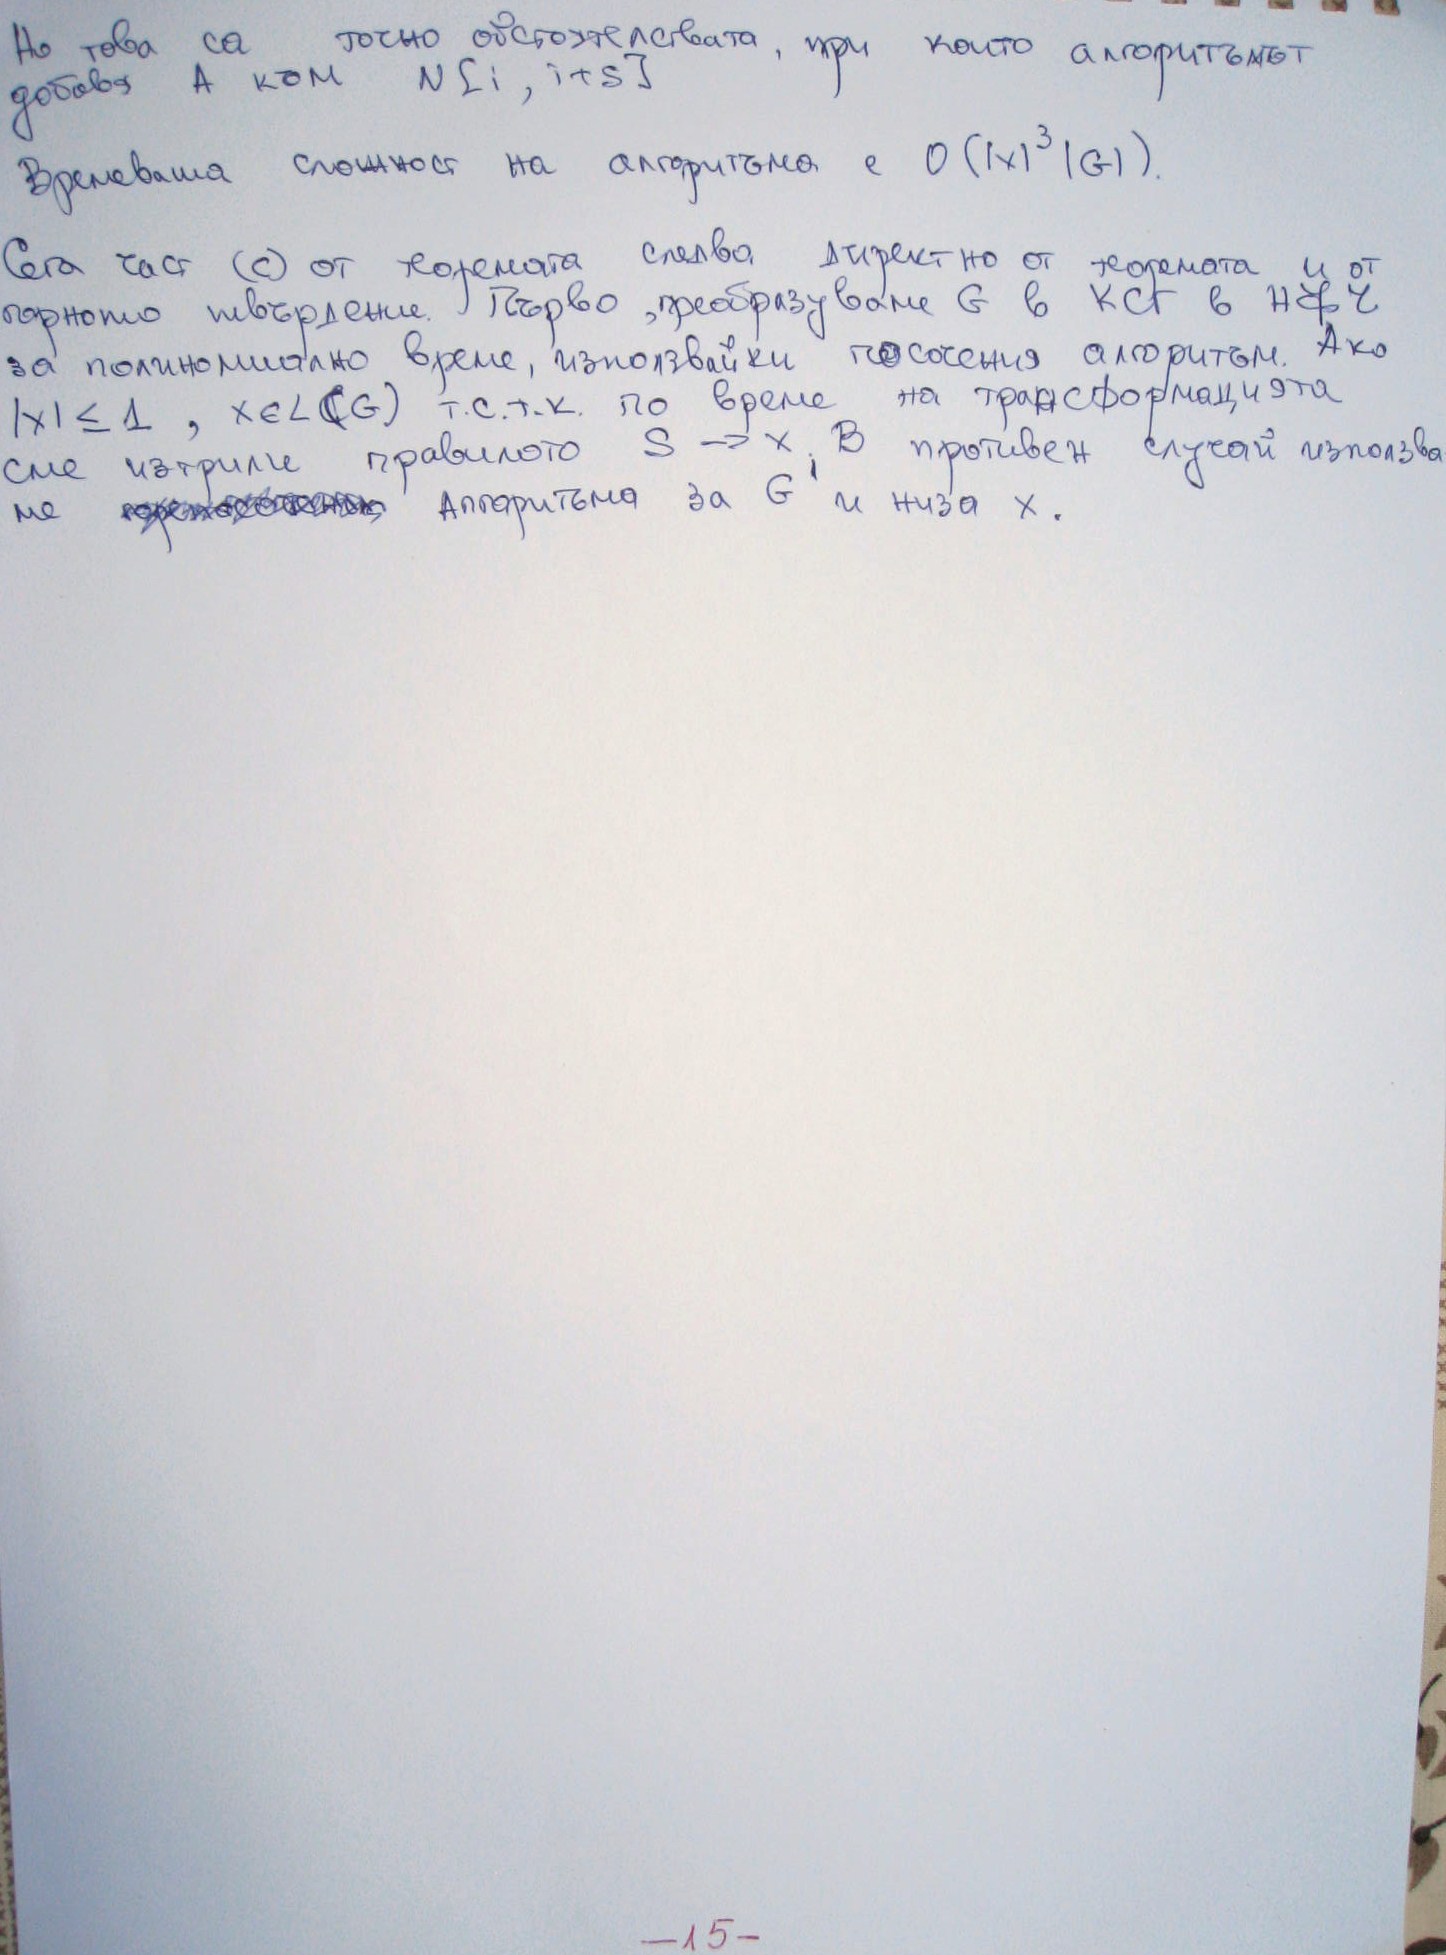 Но това са точно обстоятелствата, при които алгоритъмът
добавя A към N[i, i+s]
Времевата сложност на алгоритъма е O(|x|³|G|).
Сега част (c) от теоремата следва директно от теоремата и от
горното твърдение. Първо, преобразуваме G в КСГ в НФЧ
за полиномиално време, използвайки посочения алгоритъм. Ако
|x| ≤ 1, x∈L(G) т.с.т.к. по време на трансформацията
сме изтрили правилото S → x. В противен случай използва-
ме алгоритъма за G' и низа x.
-15-